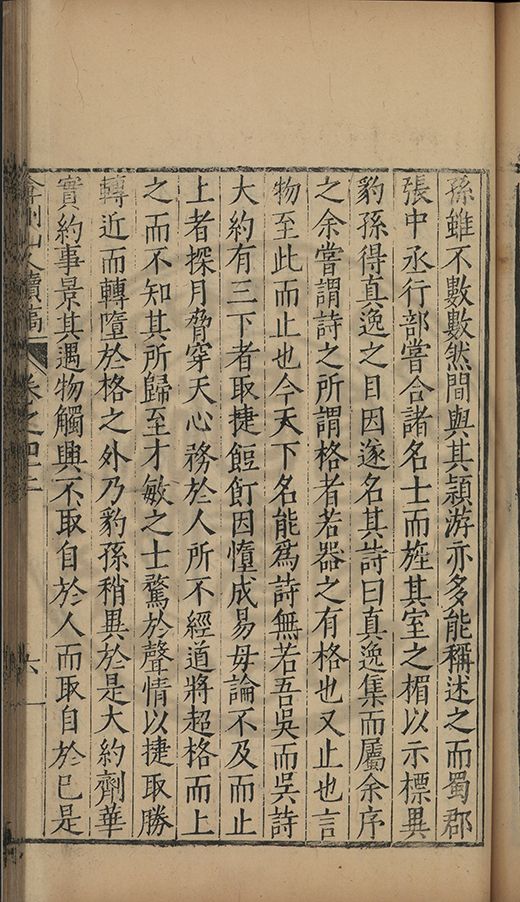 孫雖不數數然間與其頴游亦多能稱述之而蜀郡
張中丞行部嘗合諸名士而旌其室之楣以示標異
豹孫得真逸之目因遂名其詩曰真逸集而屬余序
之余嘗謂詩之所謂格者若器之有格也又止也言
物至此而止也今天下名能爲詩無若吾吳而吳詩
大約有三下者取捷餖飣因惰成易毋論不及而止
上者探月脅穿天心務於人所不經道將超格而上
之而不知其所歸至才敏之士驁於聲情以捷取勝
轉近而轉墮於格之外乃豹孫稍異於是大約劑華
實約事景其遇物觸興不取自於人而取自於已是
弇州山人續稿 卷之四十二 六